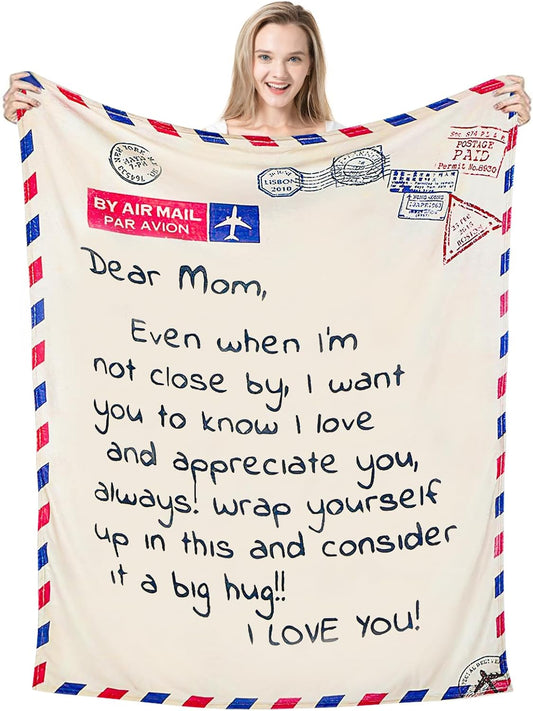 POSTAGE
PAID
Permit No.8930
LISBON
2010
BY AIR MAIL
PAR AVION
Dear Mom,
Even when I'm
not close by, I want
you to know I love
and appreciate you,
always! wrap yourself
up in this and consider
it a big hug!!
I LOVE YOU!